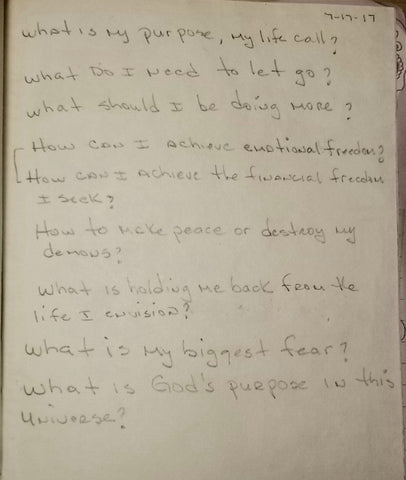 7-17-17
what is my purpose, my life call?
what Do I need to let go?
what should I be doing more?
How can I achieve emotional freedom?
How can I achieve the financial freedom
I seek?
How to make peace or destroy my
demons?
what is holding me back from the
life I envision?
what is my biggest fear?
what is God's purpose in this
Universe?